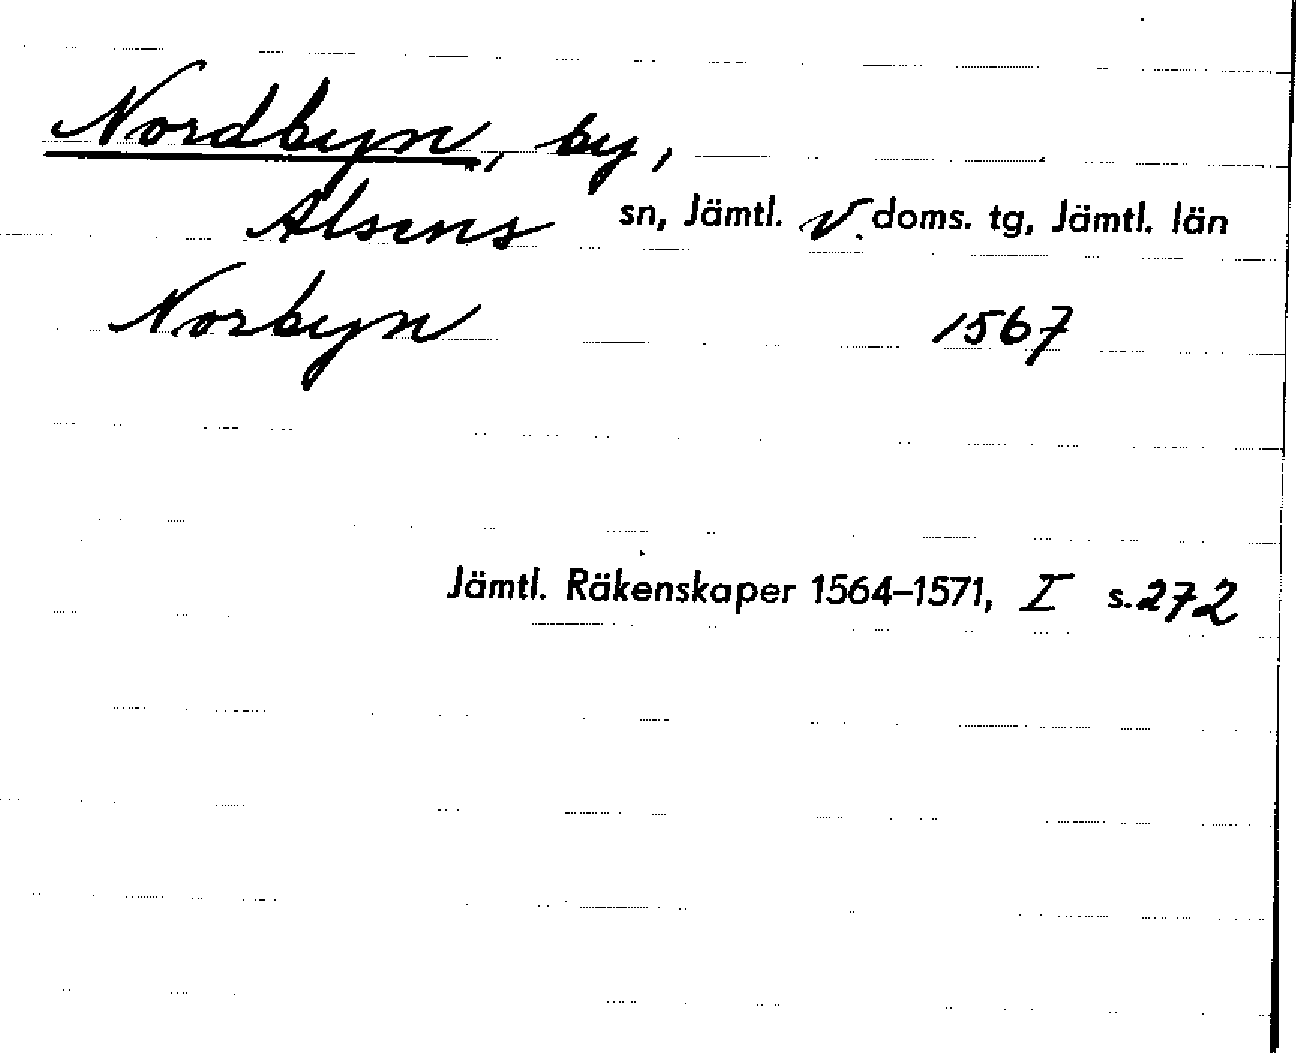 Nordbyn, by,
Alsens sn, Jämtl. v. doms. tg, Jämtl. län
Norbyn 1567
Jämtl. Räkenskaper 1564–1571, I s. 272